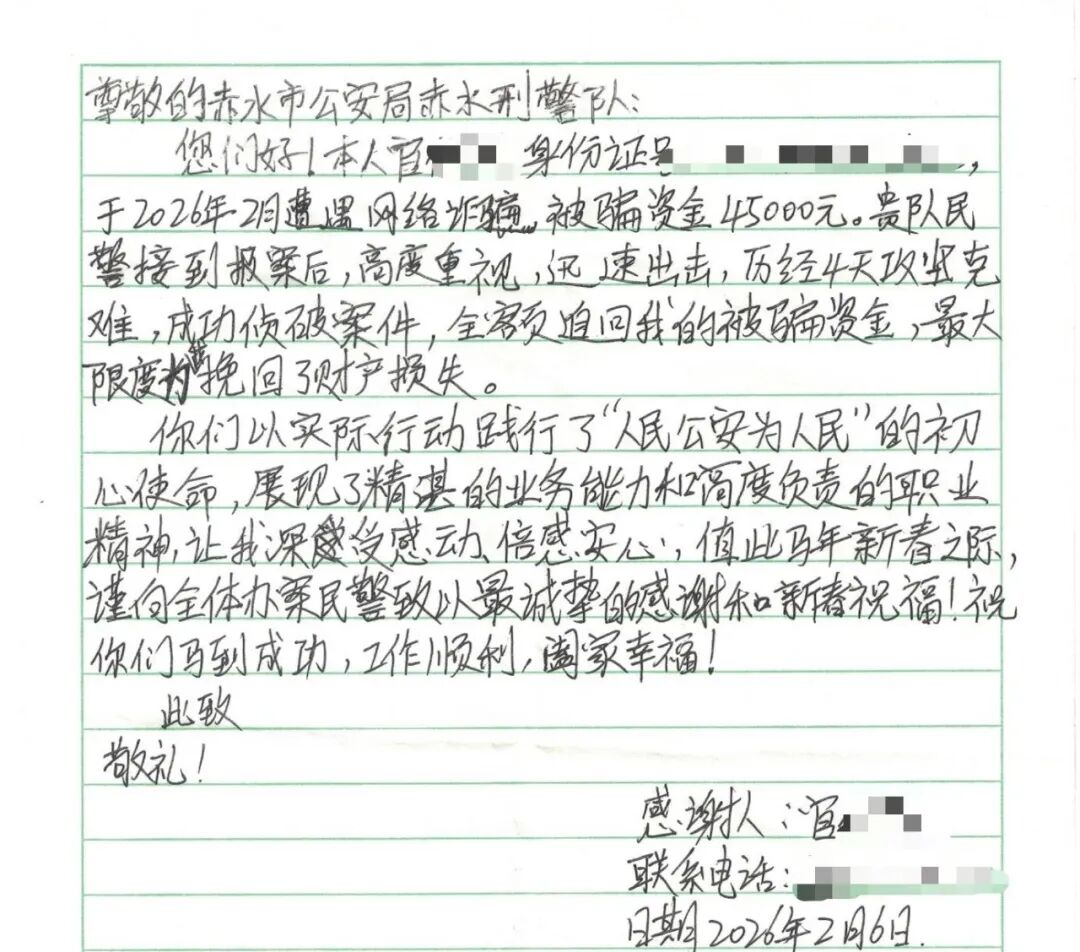 尊敬的赤水市公安局赤水刑警队：
您们好！本人官 身份证号 ，
于2026年2月遭遇网络诈骗，被骗资金45000元。贵队民
警接到报案后，高度重视，迅速出击，历经4天攻坚克
难，成功侦破案件，全额追回我的被骗资金，最大
限度为我挽回了财产损失。
你们以实际行动践行了“人民公安为人民”的初
心使命，展现了精湛的业务能力和高度负责的职业
精神，让我深受感动、倍感安心，值此马年新春之际，
谨向全体办案民警致以最诚挚的感谢和新春祝福！祝
你们马到成功，工作顺利，阖家幸福！
此致
敬礼！
感谢人：官
联系电话：
日期2026年2月6日.